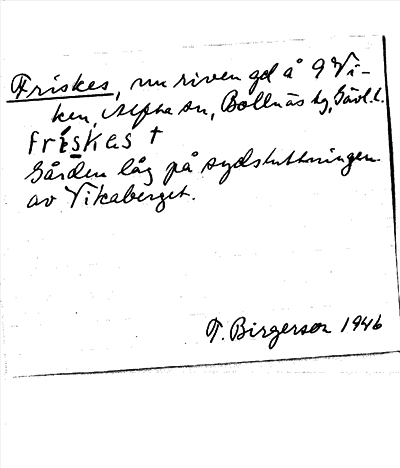 Friskes, nu riven gd å 9 Vi-
ken, Alfta sn, Bollnäs tg, Gävl.l.
friskes †
Gården låg på sydsluttningen
av Vikaberget.
T. Birgersson 1946